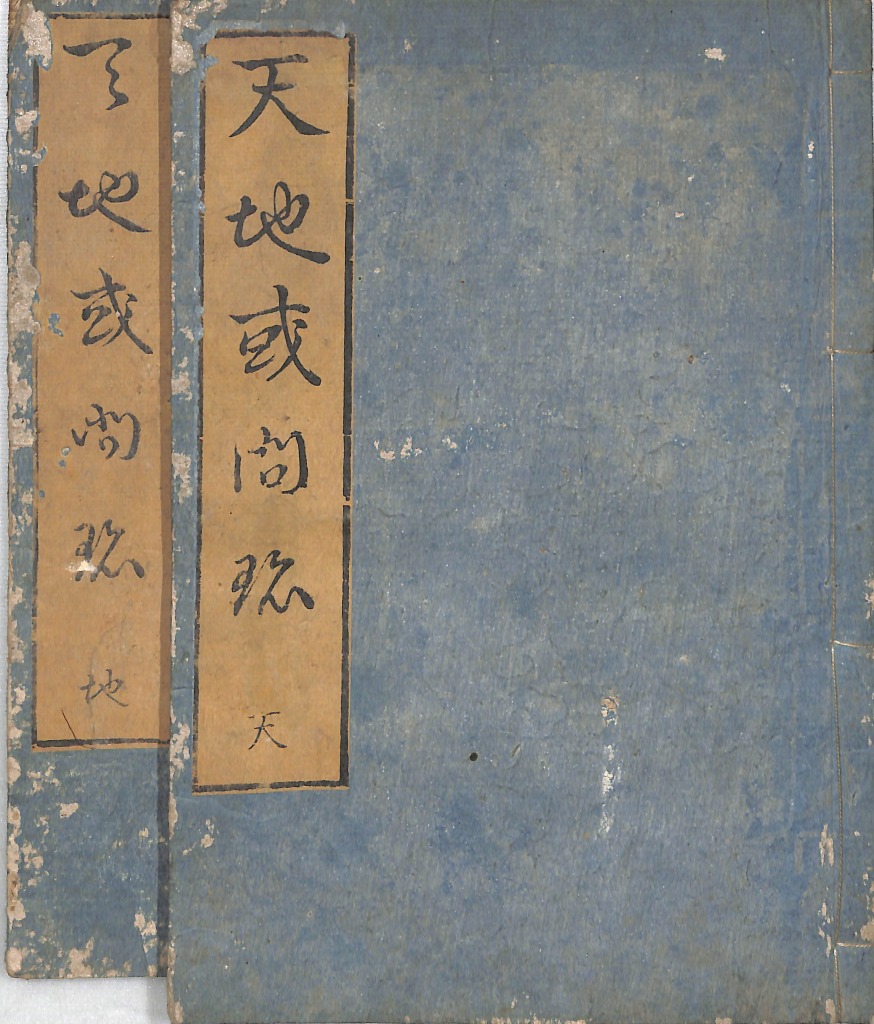 天地或問珍 天
天地或問珍 地